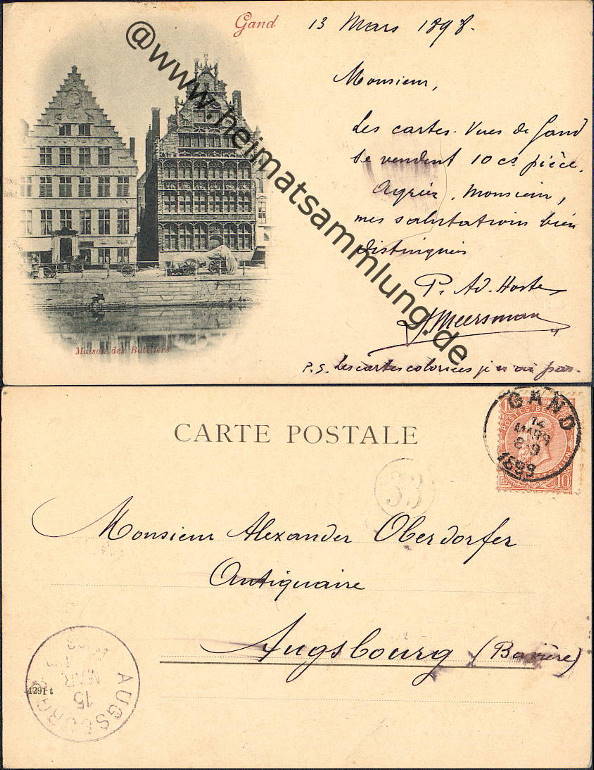 Gand
13 Mars 1898.
Monsieur,
Les cartes-Vues de Gand
se vendent 10 cs pièce.
Agréez, Monsieur,
mes salutations bien
distinguées
P. Ad. Hoste
Meersman
P.S. Les cartes coloriées je n'ai pas.
Maison des Bateliers
@www.heimatsammlung.de
CARTE POSTALE
GAND
MARS
8-9
10
53
Monsieur Alexander Oberdorfer
Antiquaire
Augsbourg (Bavière)
AUGSBURG
15
MAR